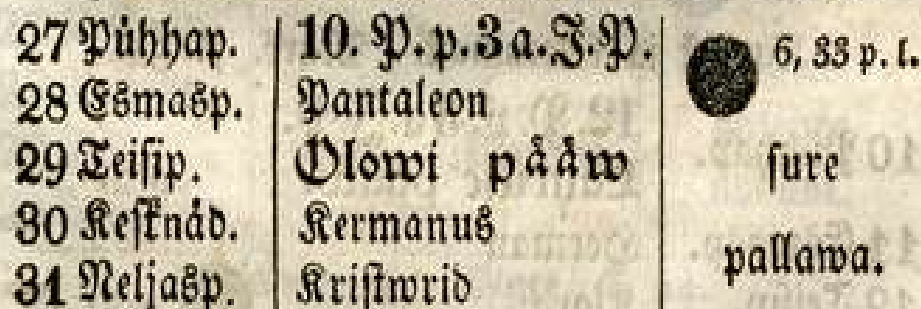 27 Pühhap. 10. P. p. 3 a. J. P. 6, 33 p. l.
28 Esmasp. Pantaleon
29 Teisip. Olowi pääw sure
30 Kesknäd. Kermanus
pallawa.
31 Neljasp. Kristwrid